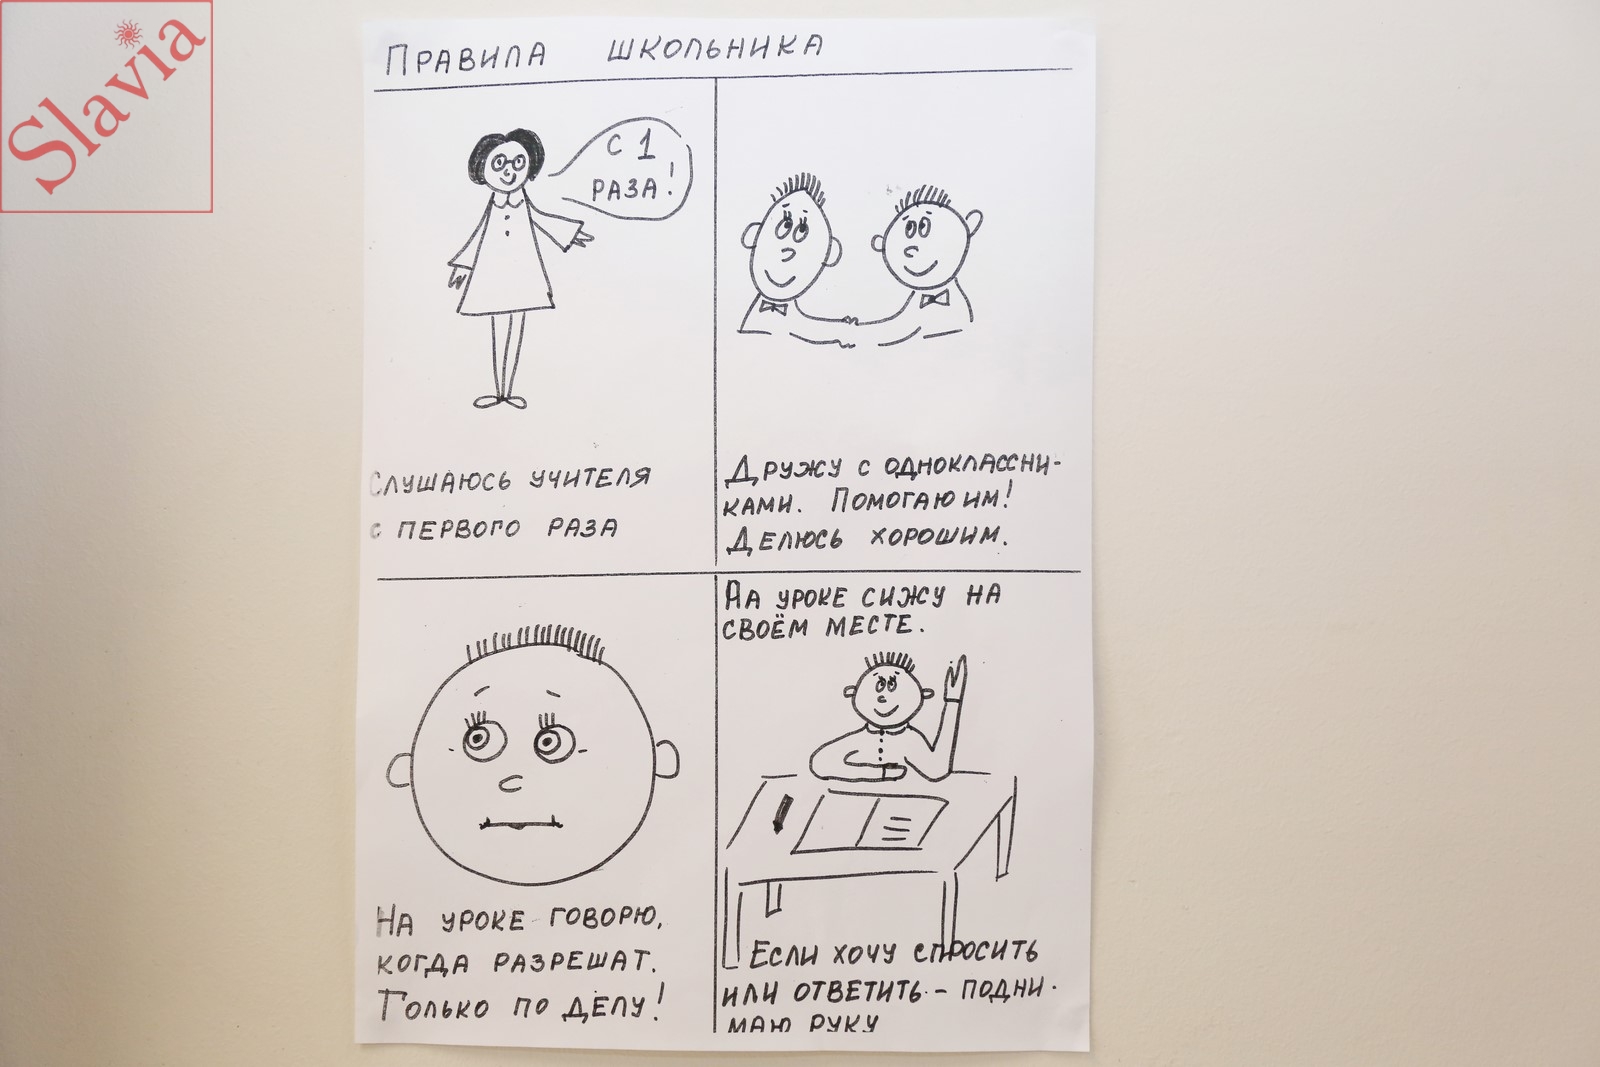 Slavia
ПРАВИЛА ШКОЛЬНИКА
С 1
РАЗА!
СЛУШАЮСЬ УЧИТЕЛЯ
С ПЕРВОГО РАЗА
ДРУЖУ С ОДНОКЛАССНИ-
КАМИ. ПОМОГАЮ ИМ!
ДЕЛЮСЬ ХОРОШИМ.
НА УРОКЕ ГОВОРЮ,
КОГДА РАЗРЕШАТ.
ТОЛЬКО ПО ДЕЛУ!
НА УРОКЕ СИЖУ НА
СВОЁМ МЕСТЕ.
ЕСЛИ ХОЧУ СПРОСИТЬ
ИЛИ ОТВЕТИТЬ - ПОДНИ-
МАЮ РУКУ